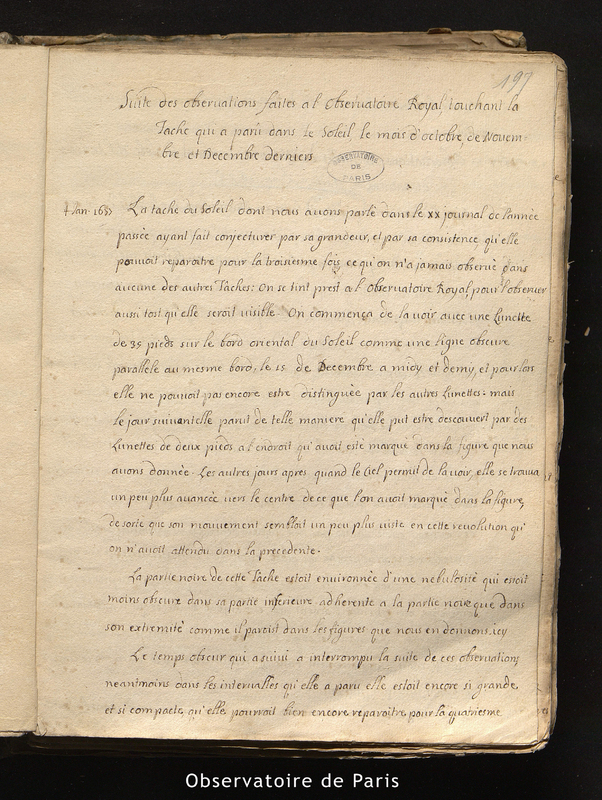 197
Suite des observations faites a l'Observatoire Royal, touchant la
Tache qui a parû dans le Soleil le mois d'octobre, de Novem-
bre et Decembre derniers
OBSERVATOIRE
DE
PARIS
La tache du Soleil dont nous avons parlé dans le xx journal de l'année
passée ayant fait conjecturer par sa grandeur, et par sa consistence qu'elle
pouvoit reparoitre pour la troisiesme fois, ce qu'on n'a jamais observé dans
aucune des autres Taches: On se tint prest a l'Observatoire Royal, pour l'observer
aussi tost qu'elle seroit visible. On commença de la voir avec une Lunette
de 35 pieds sur le bord oriental du Soleil comme une ligne obscure
parallele au mesme bord, le 15 de Decembre a midy et demy, et pour lors
elle ne pouvoit pas encore estre distinguée par les autres Lunettes: mais
le jour suivant elle parut de telle maniere qu'elle put estre descouvert par des
Lunettes de deux pieds a l'endroit qu'avoit esté marqué dans la figure que nous
avons donnée. Les autres jours apres quand le Ciel permit de la voir, elle se trouva
un peu plus avancée vers le centre de ce que l'on avoit marqué dans la figure,
de sorte que son mouvement sembloit un peu plus viste en cette revolution qu'
on n'avoit attendu dans la precedente.
La partie noire de cette Tache estoit environnée d'une nebulosité qui estoit
moins obscure dans sa partie inferieure adherente a la partie noire que dans
son extremité comme il paroist dans les figures que nous en donnons icy
Le temps obscur qui a suivi a interrompu la suite de ces observations
neantmoins dans les intervalles qu'elle a paru elle estoit encore si grande,
et si compacte, qu'elle pourroit bien encore reparoitre pour la quatriesme
Observatoire de Paris